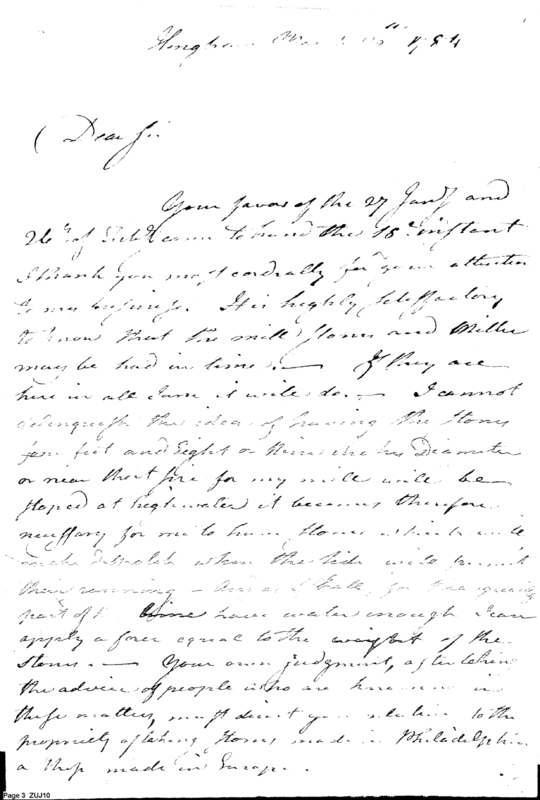 Hingham 1784
Dear Sir
Your favor of the 27 Jany and
26th of Feby came to hand the 18th instant
I thank you most cordially for your attention
to my business. It is highly satisfactory
to know that the mill stones and Miller
may be had in time. — If they are
here in all June it will do. — I cannot
relinquish the idea of having the stones
four feet and Eight or Nine inches Diameter
or near that size for my mill will be
stoped at high water it becomes therefore
necessary for me to have stones which will
make dispatch when the tide will permit
their running — And as I shall, for the greatest
part of time have water enough I can
apply a force equal to the weight of the
stones. — Your own judgment, after taking
the advice of people who are knowing in
these matters, must direct you relative to the
propriety of taking stones made in Philadelphia
or those made in Europe.
Page 3 ZUJ10